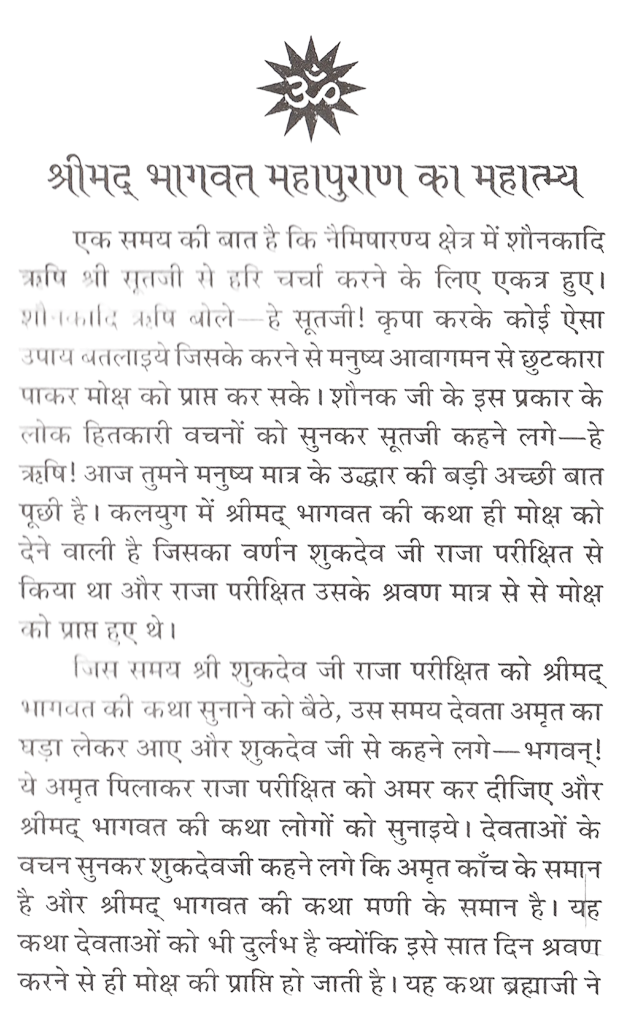 ॐ
श्रीमद् भागवत महापुराण का महात्म्य
एक समय की बात है कि नैमिषारण्य क्षेत्र में शौनकादि
ऋषि श्री सूतजी से हरि चर्चा करने के लिए एकत्र हुए।
शौनकादि ऋषि बोले—हे सूतजी! कृपा करके कोई ऐसा
उपाय बतलाइये जिसके करने से मनुष्य आवागमन से छुटकारा
पाकर मोक्ष को प्राप्त कर सके। शौनक जी के इस प्रकार के
लोक हितकारी वचनों को सुनकर सूतजी कहने लगे—हे
ऋषि! आज तुमने मनुष्य मात्र के उद्धार की बड़ी अच्छी बात
पूछी है। कलयुग में श्रीमद् भागवत की कथा ही मोक्ष को
देने वाली है जिसका वर्णन शुकदेव जी राजा परीक्षित से
किया था और राजा परीक्षित उसके श्रवण मात्र से से मोक्ष
को प्राप्त हुए थे।
जिस समय श्री शुकदेव जी राजा परीक्षित को श्रीमद्
भागवत की कथा सुनाने को बैठे, उस समय देवता अमृत का
घड़ा लेकर आए और शुकदेव जी से कहने लगे—भगवन्!
ये अमृत पिलाकर राजा परीक्षित को अमर कर दीजिए और
श्रीमद् भागवत की कथा लोगों को सुनाइये। देवताओं के
वचन सुनकर शुकदेवजी कहने लगे कि अमृत काँच के समान
है और श्रीमद् भागवत की कथा मणी के समान है। यह
कथा देवताओं को भी दुर्लभ है क्योंकि इसे सात दिन श्रवण
करने से ही मोक्ष की प्राप्ति हो जाती है। यह कथा ब्रह्माजी ने